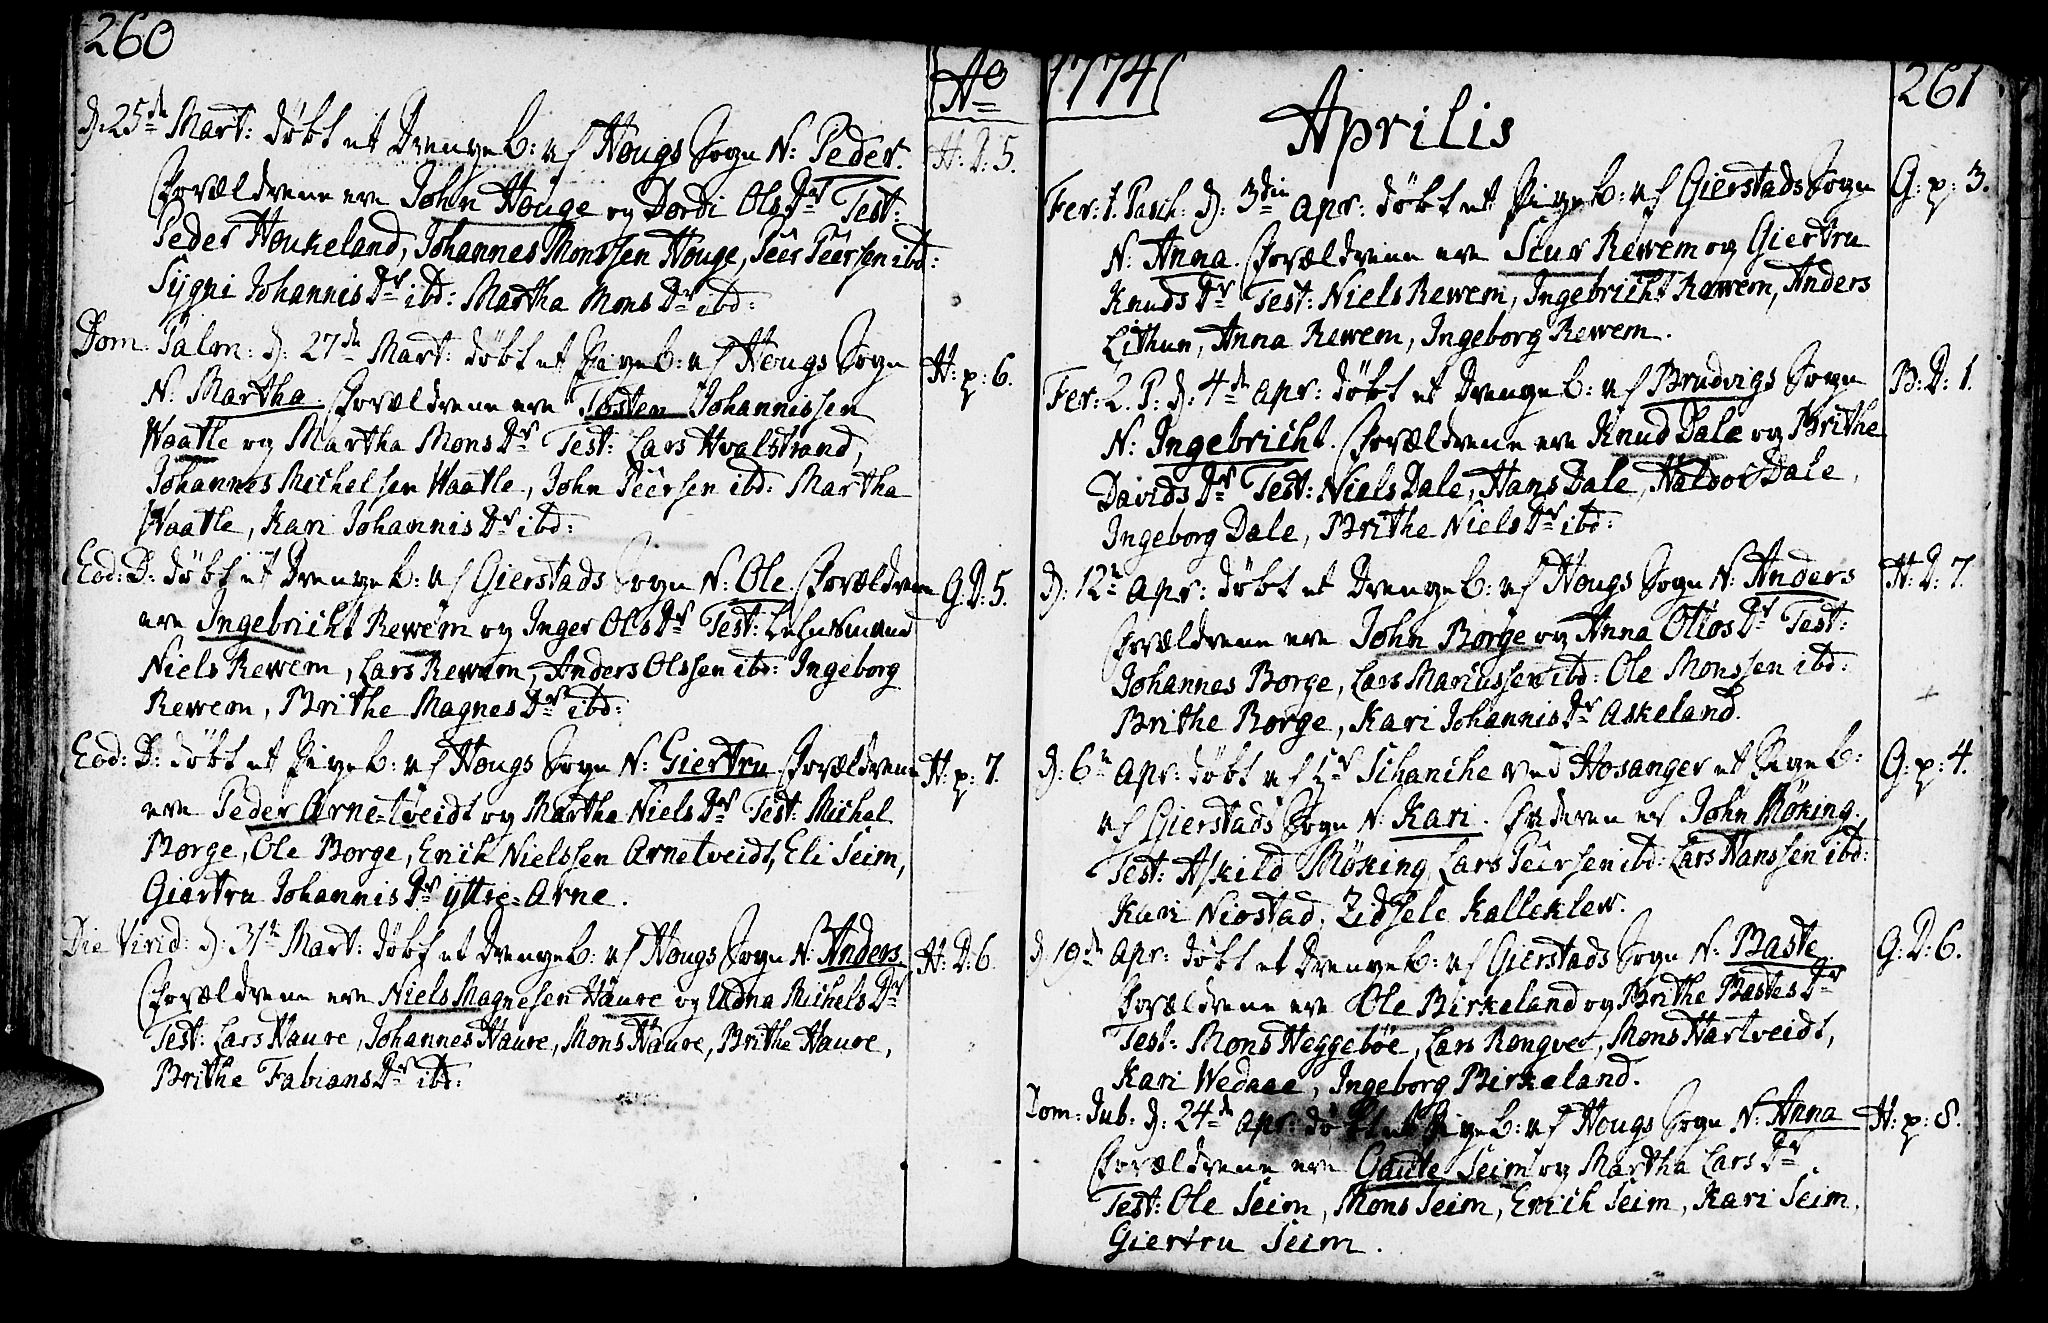 260
Ao
d. 25de Mart: døbt et Drengeb: af Hougs Sogn N: Peder. H: D: 5.
Forældrene ere John Houge og Dordi Ols Dr Test:
Peder Houkeland, Johannes Monssen Houge, Peer Peersen ibd:
Sygni Johannis Dr ibd: Martha Mons Dr ibd:
Dom. Palm: d: 27de Mart: døbt et Pigeb: af Hougs Sogn H: p: 6.
N: Martha. Forældrene ere Tosten Johannissen
Waatle og Martha Mons Dr Test: Lars Hvalstrand,
Johannes Michelsen Waatle, John Peersen ibd: Martha
Waatle, Kari Johannis Dr ibd:
Eod: D: døbt et Drengeb: af Gierstads Sogn N: Ole. Forældrene G: D: 5.
ere Ingebricht Rewem og Inger Ols Dr Test: Lehnsmand
Niels Rewem, Lars Rewem, Anders Olssen ibd: Ingeborg
Rewem, Brithe Magnes Dr ibd:
Eod: D: døbt et Pigeb: af Hougs Sogn N: Giertru Forældrene H: p: 7.
ere Peder Arne-tveidt og Martha Niels Dr Test: Michel
Borge, Ole Borge, Erich Nielssen Arnetveidt, Eli Seim,
Giertru Johannis Dr yttre-Arne.
Die Virid: d: 31te Mart: døbt et Drengeb: af Hougs Sogn N: Anders H: D: 6.
Forældrene ere Niels Magnesen Haure og Udna Michels Dr
Test: Lars Haure, Johannes Haure, Mons Haure, Brithe Haure,
Brithe Fabians Dr ibd:
1774
261
Aprilis
Fer: 1. Pasch: d: 3die Apr: døbt et Pigeb: af Gierstads Sogn G: p: 3.
N: Anna. Forældrene ere Siur Rewem og Giertru
Knuds Dr Test: Niels Rewem, Ingebricht Rewem, Anders
Lithun, Anna Rewem, Ingeborg Rewem.
Fer: 2. P: d: 4de Apr: døbt et Drengeb: af Brudvigs Sogn B: D: 1.
N: Ingebricht. Forældrene ere Knud Dale og Brithe
Davids Dr Test: Niels Dale, Hans Dale, Haldor Dale,
Ingeborg Dale, Brithe Niels Dr ibd:
d: 12te Apr: døbt et Drengeb: af Hougs Sogn N: Anders H: D: 7.
Forældrene ere John Borge og Anna Olios Dr Test:
Johannes Borge, Lars Mariussen ibd: Ole Monssen ibd:
Brithe Borge, Kari Johannis Dr Askeland.
d: 6te Apr: døbt af Hr Schanche ved Hosanger et Pigeb: G: p: 4.
af Gierstads Sogn N: Kari. Faderen er John Møking.
Test: Askild Møking Lars Peersen ibd: Lars Hanssen ibd:
Kari Niostad, Zidsele Kalleklew.
d. 19de Apr: døbt et Drengeb: af Gierstads Sogn N: Baste G: D: 6.
Forældrene ere Ole Birkeland og Brithe Bastes Dr
Test: Mons Heggebøe, Lars Rongvet, Mons Hartveidt,
Kari Wedaae, Ingeborg Birkeland.
Dom: Jub: d: 24de Apr: døbt et Pigeb: af Hougs Sogn N: Anna H: p: 8.
Forældrene ere Gaute Seim og Martha Lars Dr.
Test: Ole Seim, Mons Seim, Erich Seim, Kari Seim.
Giertru Seim.